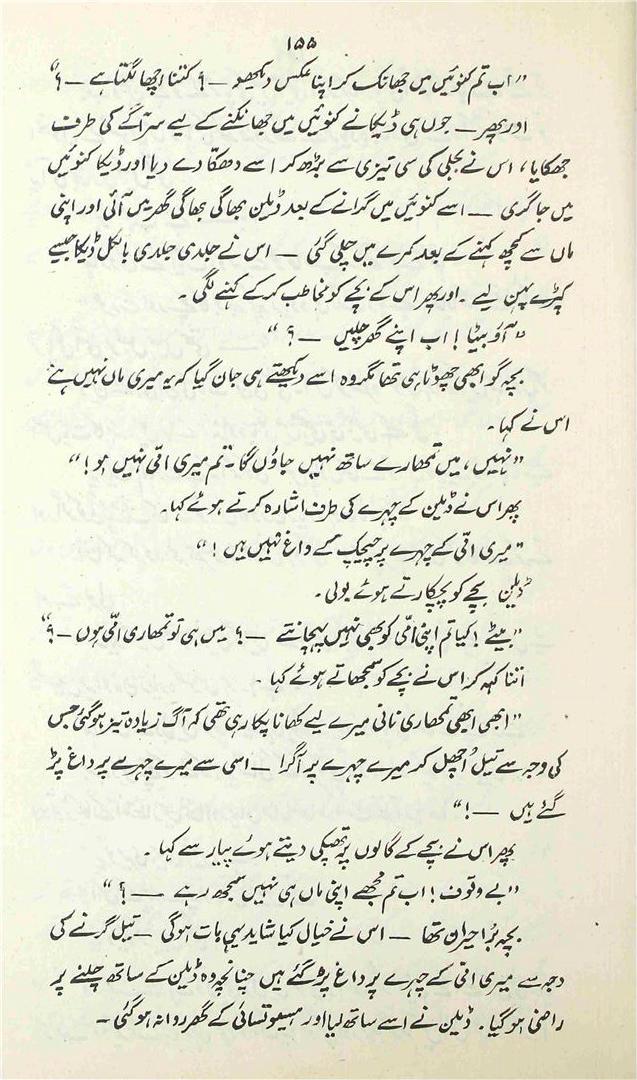 ۱۵۵
"اب تم کنوئیں میں جھانک کر اپنا عکس دیکھو — ؟ کتنا اچھا لگتا ہے — ؟"
اور پھر — جوں ہی ڈیکا نے کنوئیں میں جھانکنے کے لیے سر آگے کی طرف
جھکایا، اس نے بجلی کی سی تیزی سے بڑھ کر اسے دھکا دے دیا اور ڈیکا کنوئیں
میں جا گری — اسے کنوئیں میں گرانے کے بعد ڈیلن بھاگی بھاگی گھر میں آئی اور اپنی
ماں سے کچھ کہنے کے بعد کمرے میں چلی گئی — اس نے جلدی جلدی بالکل ڈیکا جیسے
کپڑے پہن لیے ۔ اور پھر اس کے بچے کو مخاطب کر کے کہنے لگی ۔
"آؤ بیٹا ! اب اپنے گھر چلیں — ؟ "
بچہ گو ابھی چھوٹا ہی تھا مگر وہ اسے دیکھتے ہی جان گیا کہ یہ میری ماں نہیں ہے
اس نے کہا ۔
"نہیں، میں تمھارے ساتھ نہیں جاؤں گا ۔ تم میری امّی نہیں ہو ! "
پھر اس نے ڈیلن کے چہرے کی طرف اشارہ کرتے ہوئے کہا۔
"میری امّی کے چہرے پر چیچک کے داغ نہیں ہیں ! "
ڈیلن بچے کو پچکارتے ہوئے بولی ۔
"بیٹے ! کیا تم اپنی امّی کو بھی نہیں پہچانتے — ؟ میں ہی تو تمھاری امّی ہوں — ؟"
اتنا کہہ کر اس نے بچے کو سمجھاتے ہوئے کہا ۔
"ابھی ابھی تمھاری نانی میرے لیے کھانا پکا رہی تھی کہ آگ زیادہ تیز ہو گئی جس
کی وجہ سے تیل اُچھل کر میرے چہرے پر آ گرا — اسی سے میرے چہرے پر داغ پڑ
گئے ہیں — ! "
پھر اس نے بچے کے گالوں پر تھپکی دیتے ہوئے پیار سے کہا ۔
"بے وقوف ! اب تم مجھے اپنی ماں ہی نہیں سمجھ رہے — ؟ "
بچہ بڑا حیران تھا — اس نے خیال کیا شاید یہی بات ہو گی — تیل گرنے کی
وجہ سے میری امّی کے چہرے پر داغ پڑ گئے ہیں چنانچہ وہ ڈیلن کے ساتھ چلنے پر
راضی ہو گیا ۔ ڈیلن نے اسے ساتھ لیا اور کے گھر روانہ ہو گئی ۔